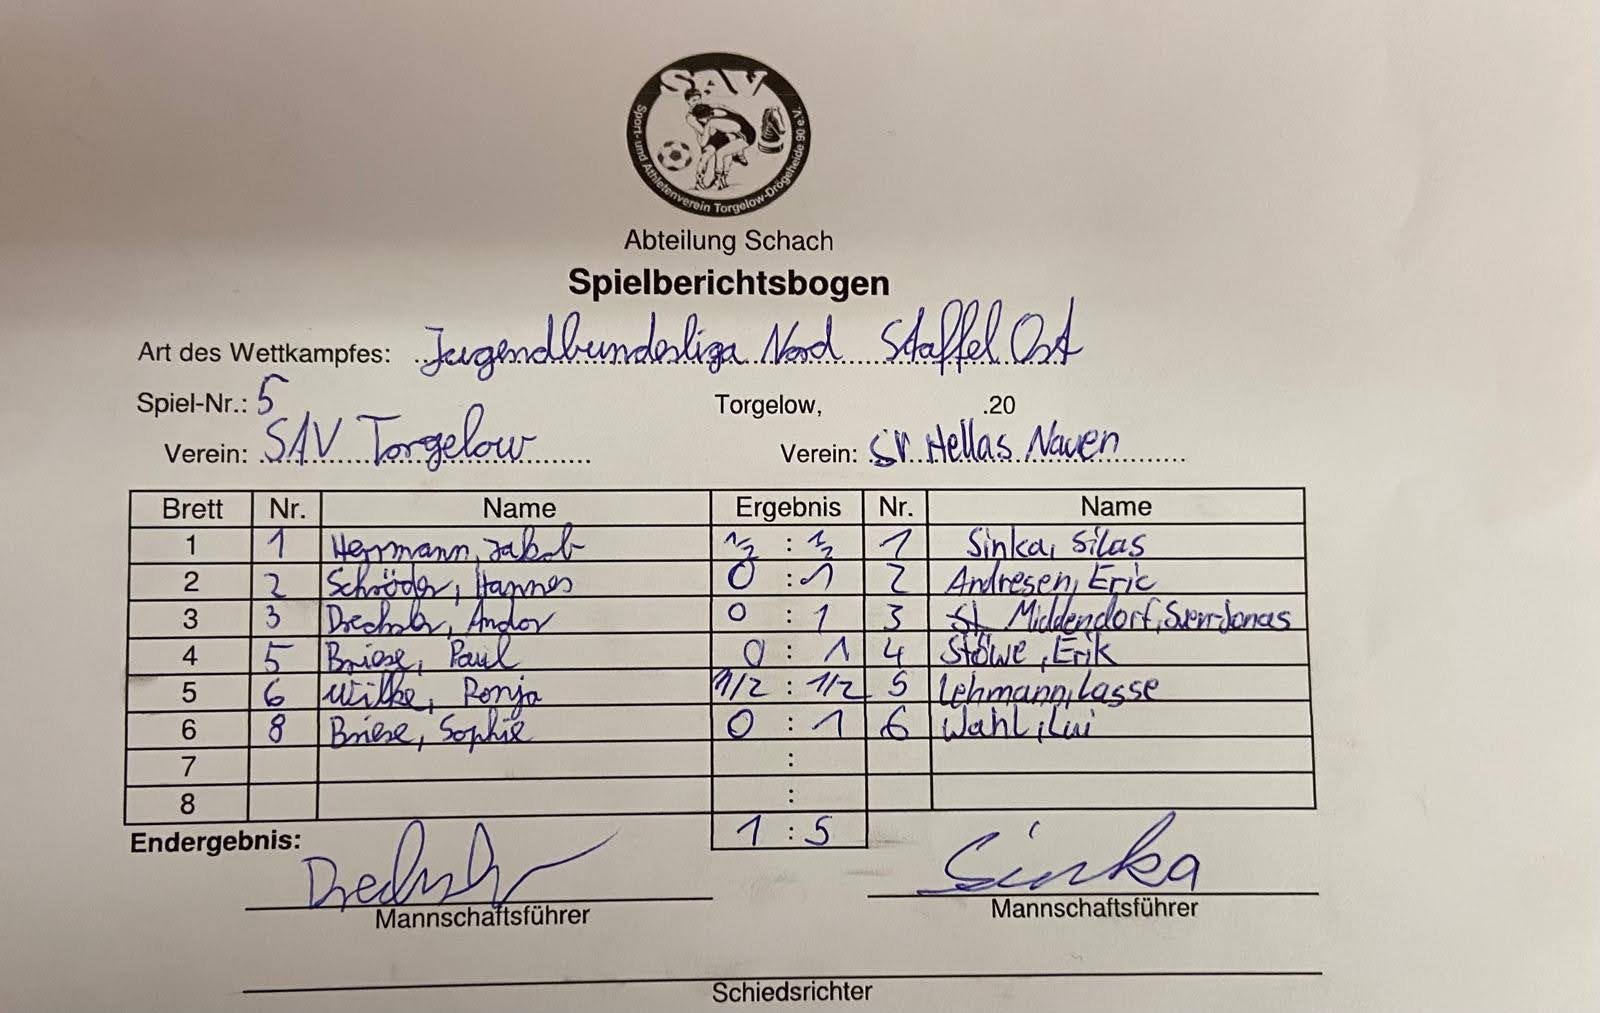 SAV
Sport- und Athletenverein Torgelow-Drögeheide 90 e.V.
Abteilung Schach
Spielberichtsbogen
Art des Wettkampfes: Jugendbundesliga Nord Staffel Ost
Spiel-Nr.: 5 Torgelow, .20
Verein: SAV Torgelow Verein: SV Hellas Nauen
Brett Nr. Name Ergebnis Nr. Name
1 1 Herrmann, Jakob 1/2 : 1/2 1 Sinka, Silas
2 2 Schröder, Hannes 0 : 1 2 Andresen, Eric
3 3 Drechsler, Andor 0 : 1 3 Middendorf, Sven-Jonas
4 5 Briese, Paul 0 : 1 4 Stöwe, Erik
5 6 Wilke, Ronja 1/2 : 1/2 5 Lehmann, Lasse
6 8 Briese, Sophie 0 : 1 6 Wahl, Lui
7 :
8 :
Endergebnis: 1 : 5
Drechsler Sinka
Mannschaftsführer Mannschaftsführer
Schiedsrichter